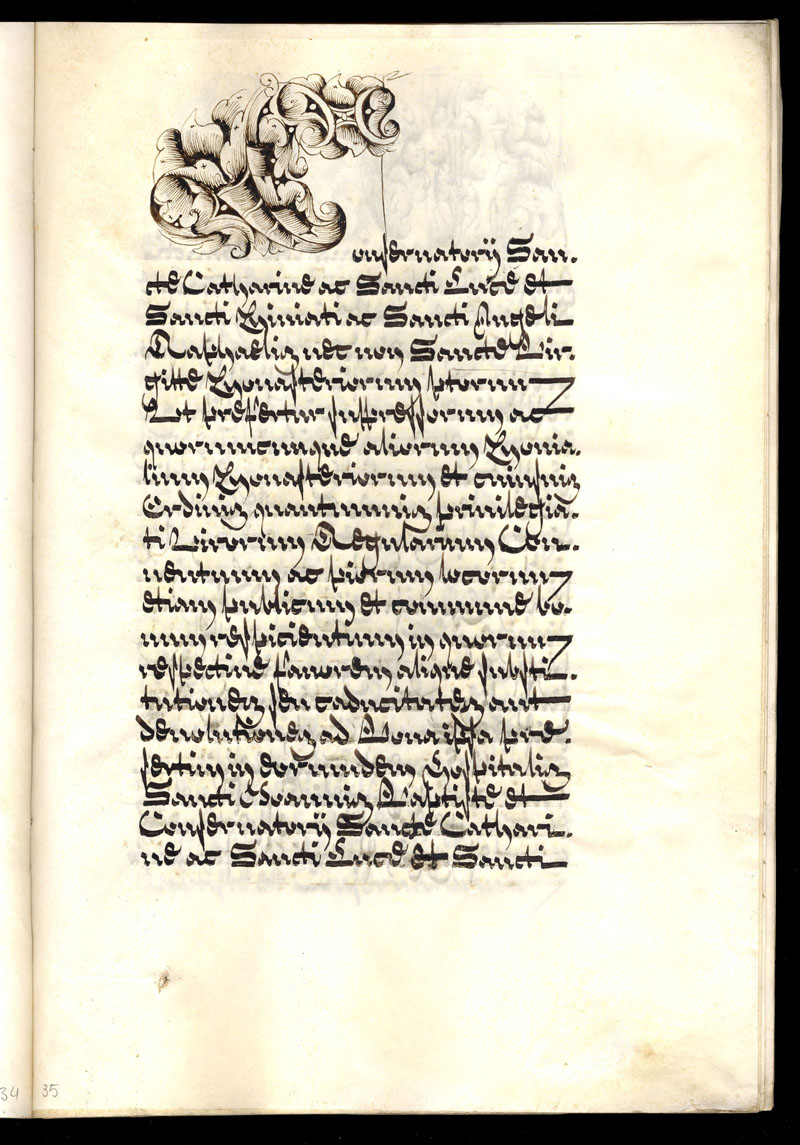 Conservatorij San-
cte Catharine ac Sancti Luce et
Sancti Miniati ac Sancti Angeli
Raphaelis nec non Sancte Bir-
gitte Monasteriorum ptorum
Ut prefertur suppressorum ac
quorumcumque aliorum Monia-
lium Monasteriorum et cuiusuis
Ordinis quantumuis priuilegia-
ti Virorum Regularium Con-
uentuum ac piorum locorum
etiam publicum et commune bo-
num respicientium in quorum
respectiue fauorem alique substi-
tutiones seu caducitates aut
deuolutiones ad Bona ipsa pre-
sertim in eorumdem Hospitalis
Sancti Joannis Baptiste et
Conseruatorij Sancte Cathari-
ne ac Sancti Luce et Sancti
34 35